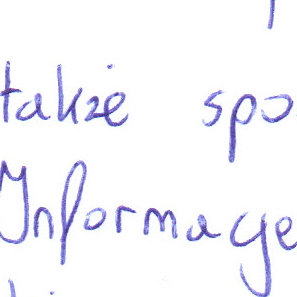 także spo
Informacje